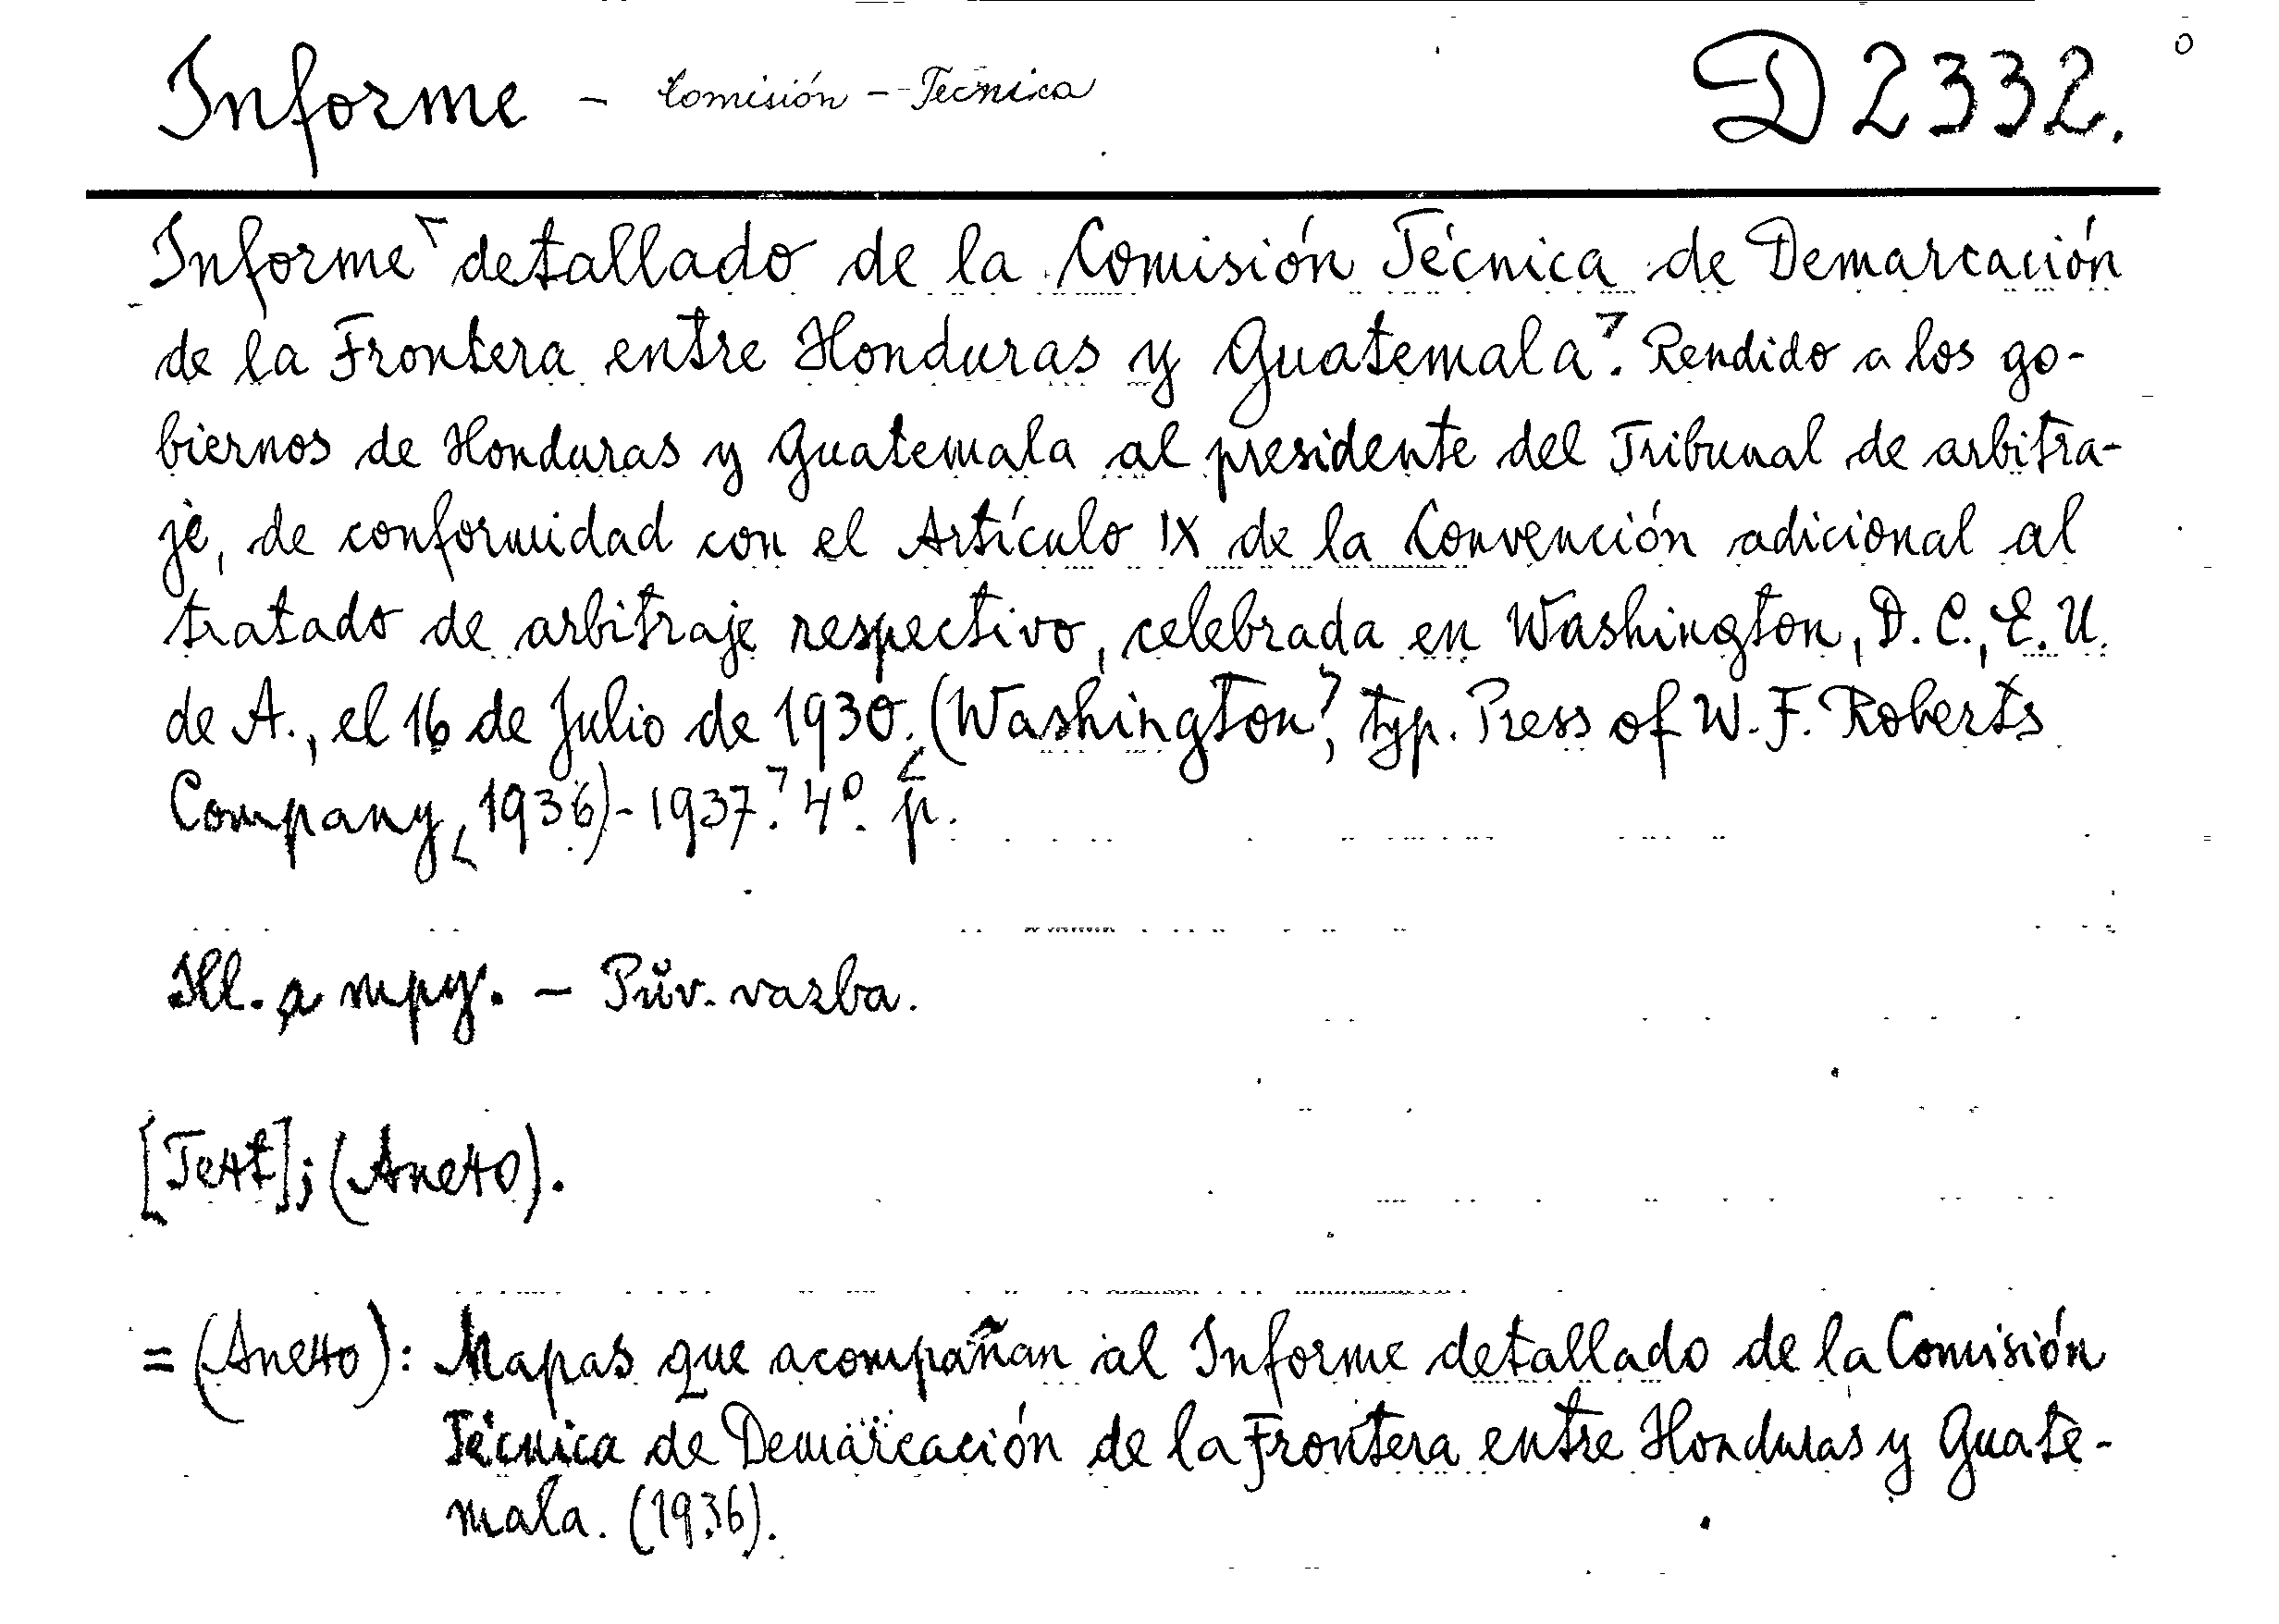 Informe - Comisión - Tecnica D 2332.
Informe detallado de la Comisión Técnica de Demarcación
de la Frontera entre Honduras y Guatemala. Rendido a los go-
biernos de Honduras y Guatemala al presidente del Tribunal de arbitra-
je, de conformidad con el Artículo IX de la Convención adicional al
tratado de arbitraje respectivo, celebrada en Washington, D. C., E. U.
de A., el 16 de Julio de 1930. (Washington, typ. Press of W. F. Roberts
Company, 1936)-1937. 4°. p.
Ill. a mpy. - Pův. vazba.
[Text]; (Anexo).
= (Anexo): Mapas que acompañan al Informe detallado de la Comisión
Técnica de Demarcación de la Frontera entre Honduras y Guate-
mala. (1936).